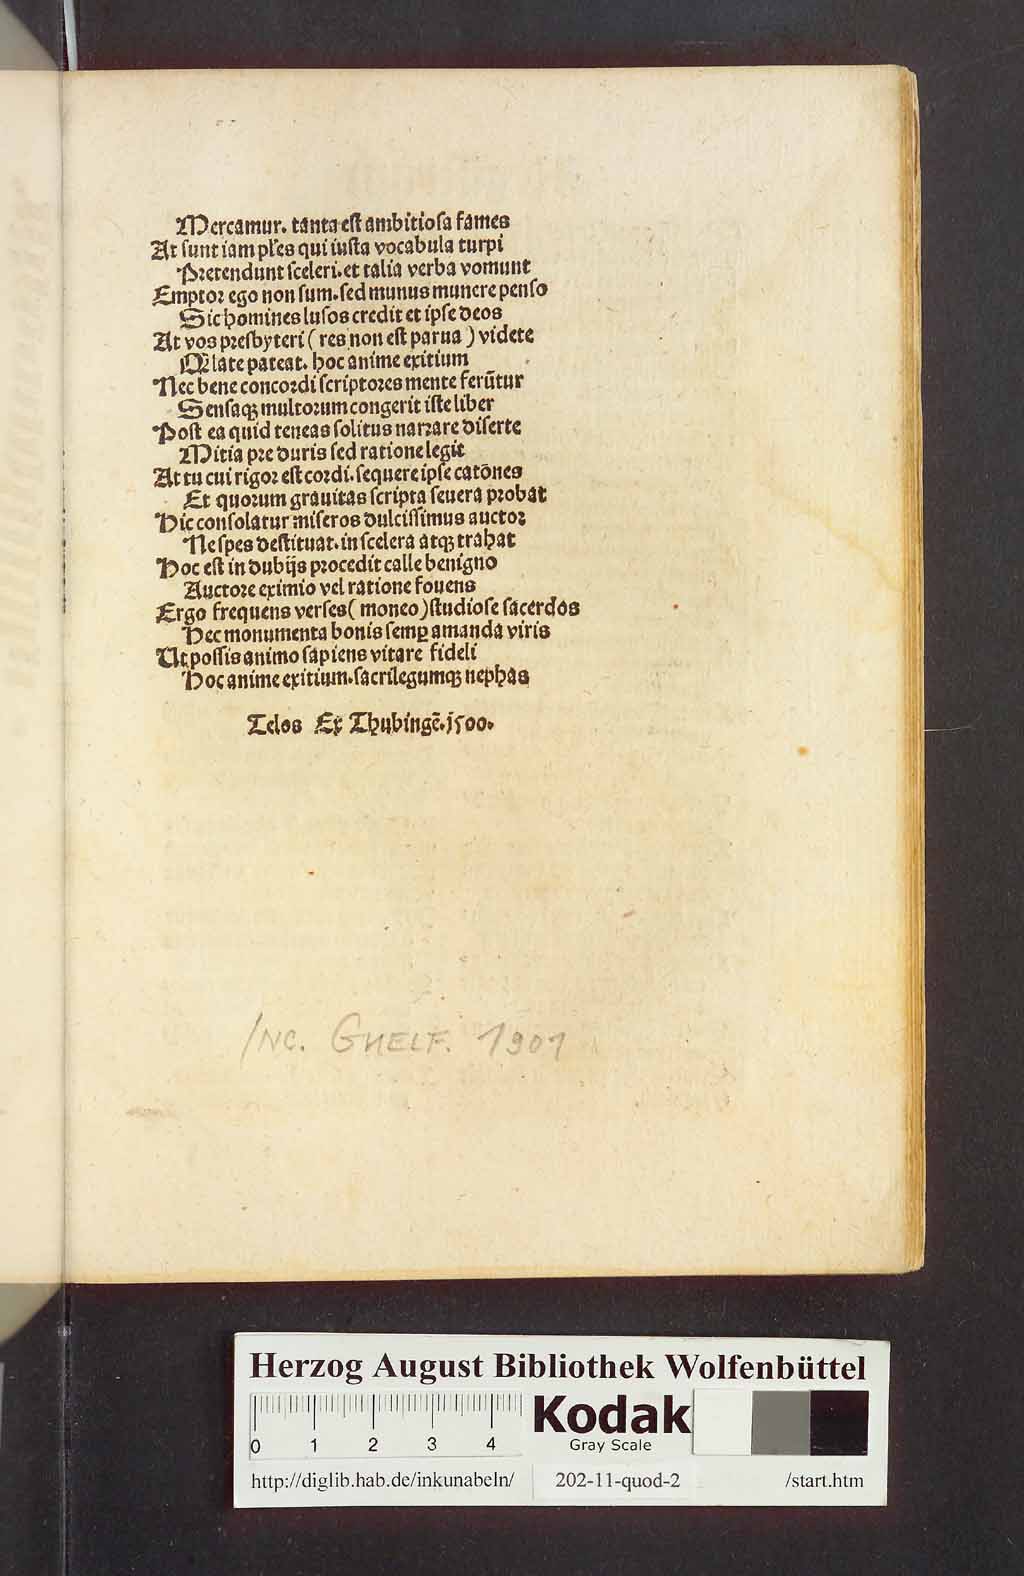 Mercamur. tanta est ambitiosa fames
At sunt iam pl̃es qui iusta vocabula turpi
Pretendunt sceleri. et talia verba vomunt
Emptor ego non sum. sed munus munere penso
Sic homines lusos credit et ipse deos
At vos presbyteri ( res non est parua ) videte
Q̃ late pateat. hoc anime exitium
Nec bene concordi scriptores mente ferũtur
Sensaqꝫ multorum congerit iste liber
Post ea quid teneas solitus narrare diserte
Mitia pre duris sed ratione legit
At tu cui rigor est cordi. sequere ipse catōnes
Et quorum grauitas scripta seuera probat
Hic consolatur miseros dulcissimus auctor
Ne spes destituat. in scelera atqꝫ trahat
Hoc est in dubijs procedit calle benigno
Auctore eximio vel ratione fouens
Ergo frequens verses ( moneo ) studiose sacerdos
Hec monumenta bonis semꝑ amanda viris
Ut possis animo sapiens vitare fideli
Hoc anime exitium. sacrilegumqꝫ nephas
Telos Ex Thubingẽ. 1500.
Inc. Guelf. 1901
Herzog August Bibliothek Wolfenbüttel
0 1 2 3 4
Kodak
Gray Scale
http://diglib.hab.de/inkunabeln/ 202-11-quod-2 /start.htm